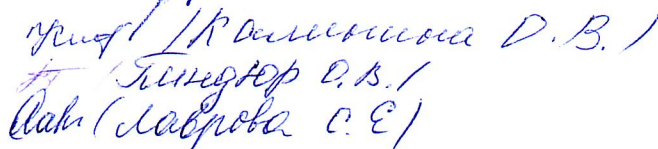 /Калинина О.В./
/Пиндюр О.В./
(Лаврова С.Е)